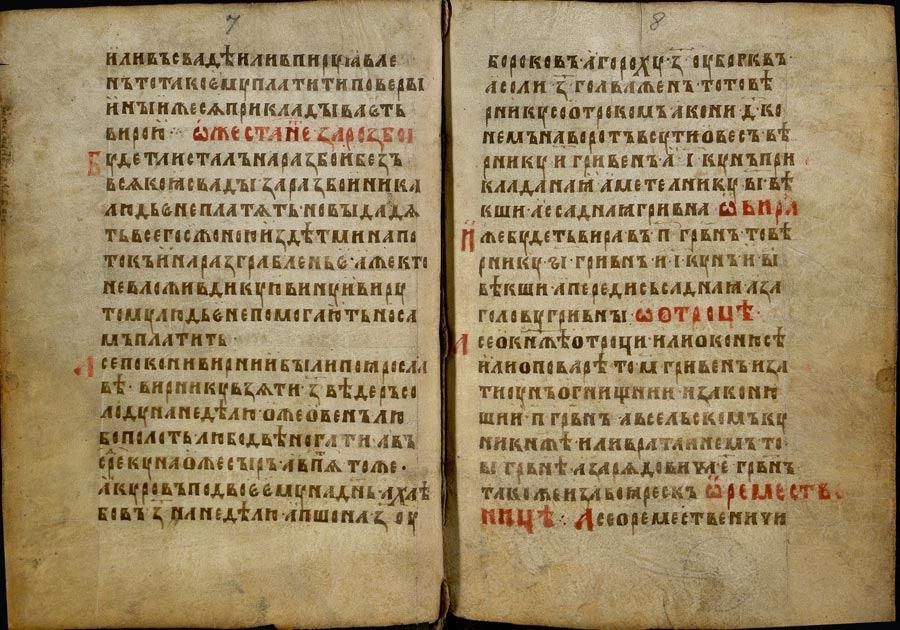 7
или въ свадѣ или в пиру ꙗвле
нъ то тако ѥму платити по верьви
нынѣ иже сѧ прикладываѥть
вирою ѡже стане без розбоꙗ
Будетли сталъ на разбои безъ
всѧкоꙗ свады то за разбоиника
людьѥ не платѧть но выдадѧ
ть всего с женою и з дѣтми на по
токъ и на разграбленьѥ аже кто
не вложив дикую виру
тому людьѥ не помогають но са
мъ платить
А се покони вирнии были при ꙗросла
вѣ вирнику взѧти з вѣдеръ со
лоду на недѣлю оже овенъ лю
бо полоть любо двѣ ногатѣ а въ
срѣ куна оже сыръ а в пѧ тоже
а куровъ по двоѥ ѥму на днь а хлѣ
бовъ з на недѣлю а пшона з оу
8
бороковъ а гороху з оуборквъ
а соли з голваженъ то то вѣ
рнику со отрокомъ а кони д ко
немъ на воротъ сути овесъ вѣ
рнику и гривенъ а і кунъ при
кладанаꙗ а метелнику ві вѣ
кши а ссаднаꙗ гривна ѡ вира
Иже будеть вира въ п грвнъ то вѣ
рнику ѕі гривнъ и і кунъ и ві
вѣкши а переди съсаднаꙗ а за
голову г гривны ѡ отроцѣ
Аже о кнѧжѣ отроци или о конюсѣ
или о поварѣ то м гривенъ и за
тиоунъ огнищнии и за коню
шии п грвнъ а в сельскомъ ти
внѣ кнѧжѣ или в ратаинемъ то
ві грвнѣ а за рѧдовича е грвнъ
тако же и за боꙗрескъ ѡ ремествь
ницѣ А се о ремественичи